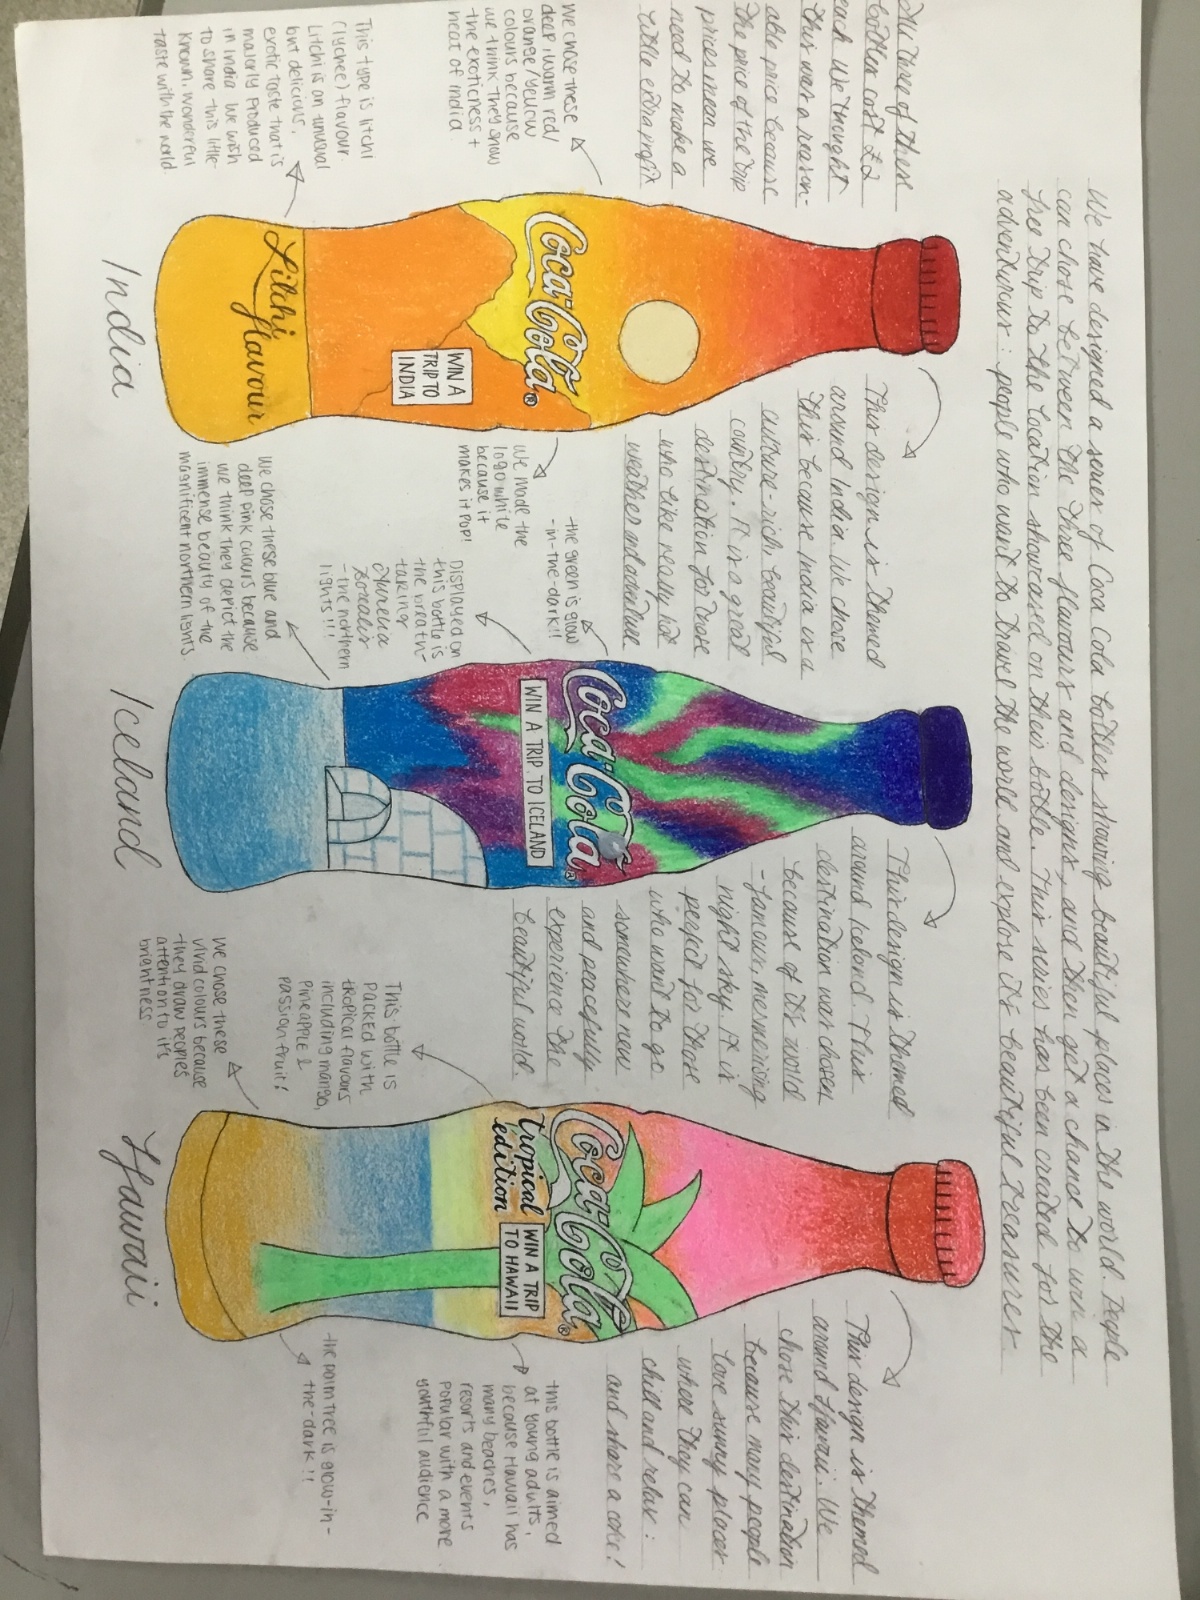 We have designed a series of Coca Cola bottles showing beautiful places in the world. People
can chose between the three flavours and designs, and then get a chance to win a
free trip to the location showcased on their bottle. This series has been created for the
adventurous: people who want to travel the world and explore it's beautiful treasures
All three of these
bottles cost £2
each. We thought
this was a reason-
able price because
the price of the trip
prizes mean we
need to make a
little extra profit
We chose these
deep, warm red/
orange/yellow
colours because
we think they show
the exoticness +
heat of India
This type is litchi
(lychee) flavour.
Litchi is an unusual
but delicious,
exotic taste that is
majorly produced
in India. We wish
to share this little-
known, wonderful
taste with the world
Coca-Cola®
WIN A
TRIP TO
INDIA
Litchi
flavour
India
This design is themed
around India. We chose
this because India is a
culture-rich, beautiful
country. It is a great
destination for those
who like really hot
weather and adventure
We made the
logo white
because it
makes it pop!
the green is glow
-in-the-dark!!
Displayed on
this bottle is
the breath-
taking
Aurora
Borealis
-the northern
lights!!!
We chose these blue and
deep pink colours because
we think they depict the
immense beauty of the
magnificent northern lights.
Coca-Cola
WIN A TRIP TO ICELAND
Iceland
This design is themed
around Iceland. This
destination was chosen
because of it's world
-famous, mesmerising
night sky. It is
perfect for those
who want to go
somewhere new
and peacefully
experience the
beautiful world.
This bottle is
packed with
tropical flavours
including mango,
pineapple &
passionfruit!
We chose these
vivid colours because
they draw peoples
attention to it's
brightness
Coca-Cola®
tropical
edition
WIN A TRIP
TO HAWAII
Hawaii
This design is themed
around Hawaii. We
chose this destination
because many people
love sunny places
where they can
chill and relax:
and share a coke!
this bottle is aimed
at young adults,
because Hawaii has
many beaches,
resorts and events
popular with a more
youthful audience
the palm tree is glow-in-
the-dark!!